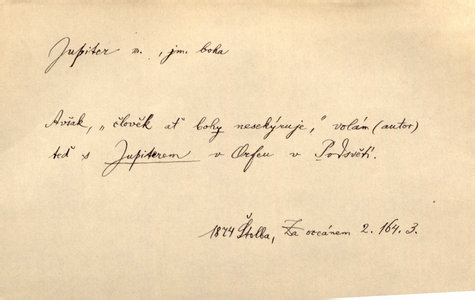 Jupiter m., jm. boha
Avšak, „člověk ať bohy nesekýruje,“ volám (autor)
teď s Jupiterem v Orfeu v Podsvětí.
1874 Štolba, Za oceánem 2. 164. 3.